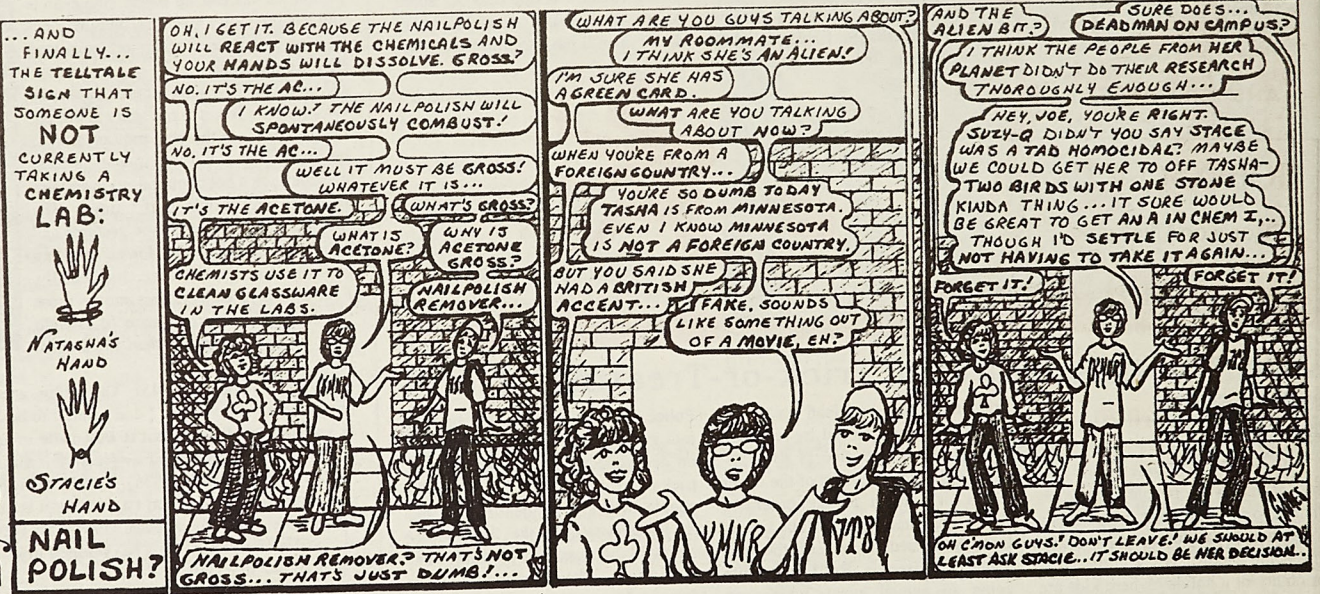 ...AND
FINALLY...
THE TELLTALE
SIGN THAT
SOMEONE IS
NOT
CURRENTLY
TAKING A
CHEMISTRY
LAB:
NATASHA'S
HAND
STACIE'S
HAND
NAIL
POLISH?
OH, I GET IT. BECAUSE THE NAILPOLISH
WILL REACT WITH THE CHEMICALS AND
YOUR HANDS WILL DISSOLVE. GROSS?
NO. IT'S THE AC...
I KNOW! THE NAILPOLISH WILL
SPONTANEOUSLY COMBUST!
NO. IT'S THE AC...
WELL IT MUST BE GROSS!
WHATEVER IT IS...
IT'S THE ACETONE.
WHAT'S GROSS?
WHAT IS
ACETONE?
WHY IS
ACETONE
GROSS?
CHEMISTS USE IT TO
CLEAN GLASSWARE
IN THE LABS.
NAILPOLISH
REMOVER...
KMNR
NAILPOLISH REMOVER? THAT'S NOT
GROSS... THAT'S JUST DUMB!...
WHAT ARE YOU GUYS TALKING ABOUT?
MY ROOMMATE...
I THINK SHE'S AN ALIEN!
I'M SURE SHE HAS
A GREEN CARD.
WHAT ARE YOU TALKING
ABOUT NOW?
WHEN YOU'RE FROM A
FOREIGN COUNTRY...
YOU'RE SO DUMB TODAY
TASHA IS FROM MINNESOTA.
EVEN I KNOW MINNESOTA
IS NOT A FOREIGN COUNTRY.
BUT YOU SAID SHE
HAD A BRITISH
ACCENT...
FAKE. SOUNDS
LIKE SOMETHING OUT
OF A MOVIE, EH?
KMNR
AND THE
ALIEN BIT?
SURE DOES...
DEADMAN ON CAMPUS?
I THINK THE PEOPLE FROM HER
PLANET DIDN'T DO THEIR RESEARCH
THOROUGHLY ENOUGH...
HEY, JOE, YOU'RE RIGHT.
SUZY-Q DIDN'T YOU SAY STACE
WAS A TAD HOMOCIDAL? MAYBE
WE COULD GET HER TO OFF TASHA-
TWO BIRDS WITH ONE STONE
KINDA THING... IT SURE WOULD
BE GREAT TO GET AN A IN CHEM I,..
THOUGH I'D SETTLE FOR JUST
NOT HAVING TO TAKE IT AGAIN...
FORGET IT!
FORGET IT!
KMNR
OH C'MON GUYS! DON'T LEAVE! WE SHOULD AT
LEAST ASK STACIE... IT SHOULD BE HER DECISION..